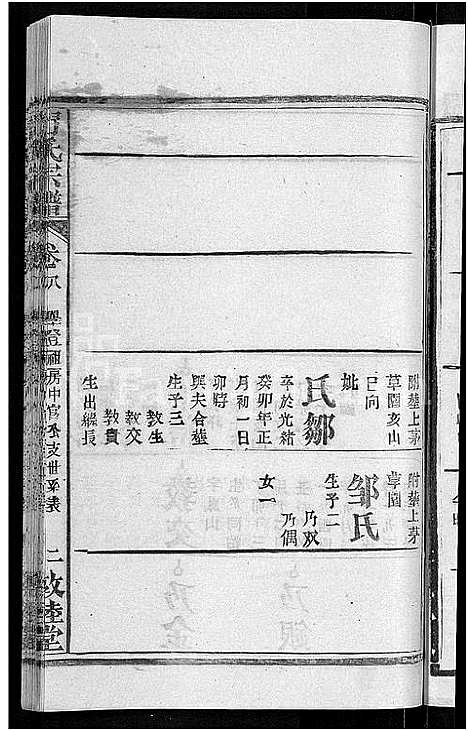 附葬上茅
草園亥山
巳向
妣
氏鄒
卒於光緒
癸卯年正
月初一日
卯時
與夫合葬
生子三
教生
教交
教貴
生出繼長
附葬上茅
草園
鄒氏
生子二
乃双
乃偶
女一
氏宗譜
卷八
房中官
支世系表
二
敦睦堂